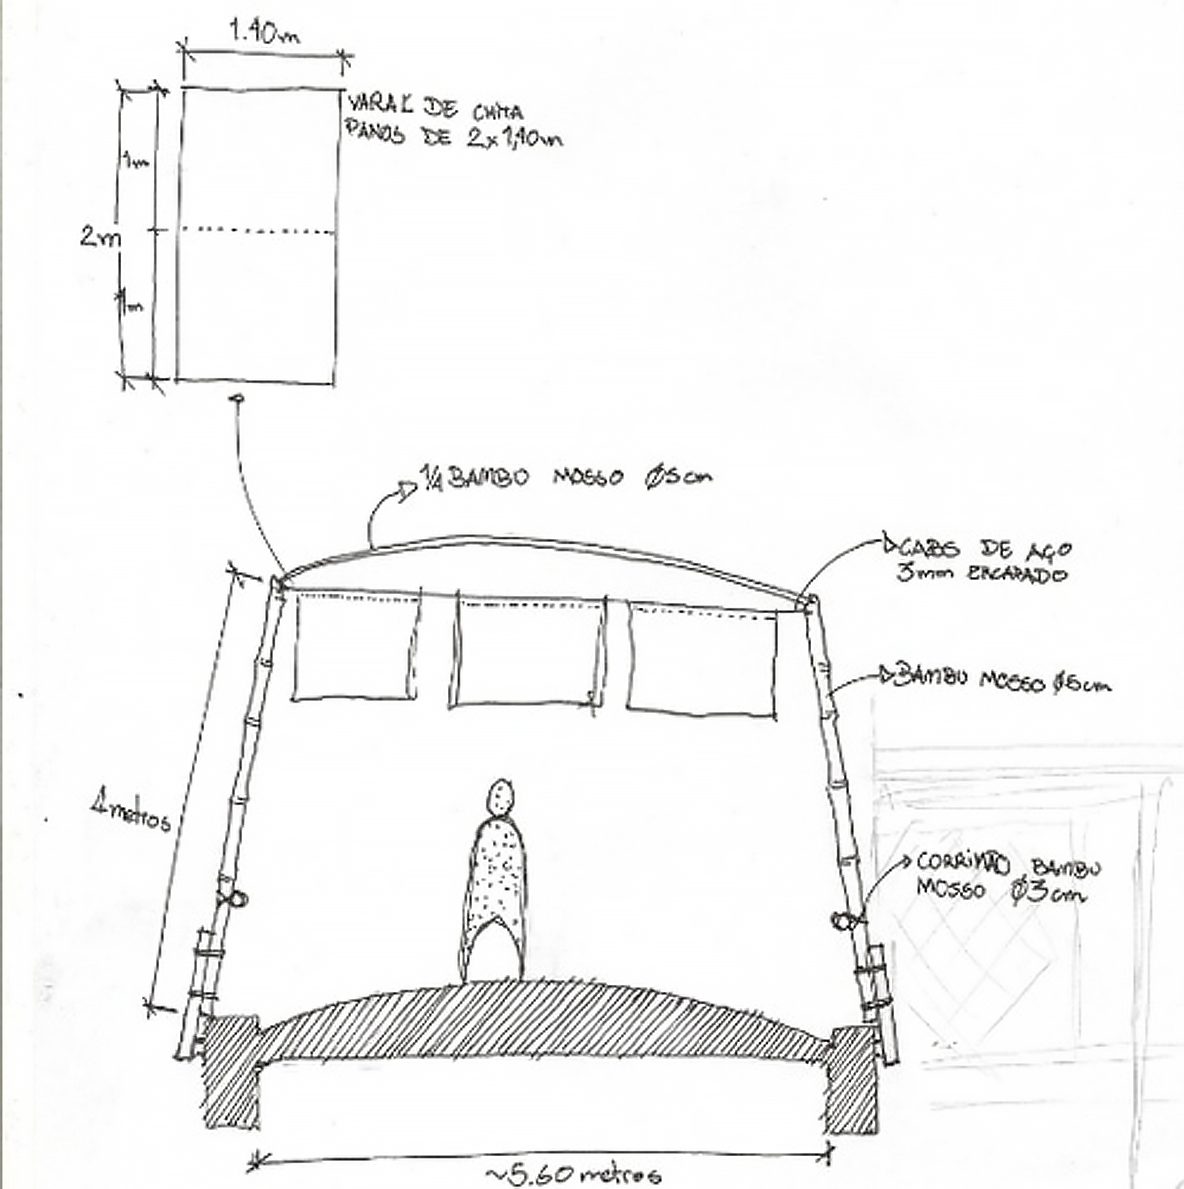 1.40m
VARAL DE CHITA
PANOS DE 2x1,40m
1m
2m
1m
1/4 BAMBO MOSSO Ø5cm
CABO DE AÇO
3mm ENCAPADO
BAMBU MOSSO Ø5cm
4 metros
CORRIMÃO BAMBU
MOSSO Ø3cm
~5.60 metros